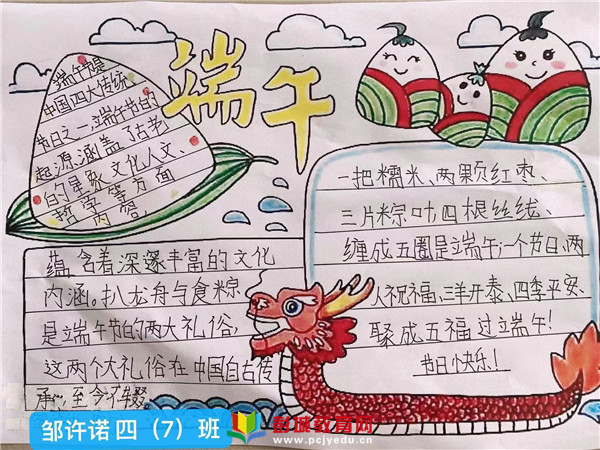 端午
端午节是
中国四大传统
节日之一,端午节的
起源涵盖了古老
的星象文化人文、
哲学等方面
内容,
蕴含着深邃丰富的文化
内涵。扒龙舟与食粽
是端午节的两大礼俗,
这两个大礼俗在中国自古传
承,至今不辍
一把糯米、两颗红枣、
三片粽叶四根丝线、
缠成五圈是端午;一个节日、两
人祝福、三羊开泰、四季平安、
聚成五福过端午!
节日快乐!
邹许诺 四(7)班
彭城教育网
www.pcjyedu.cn